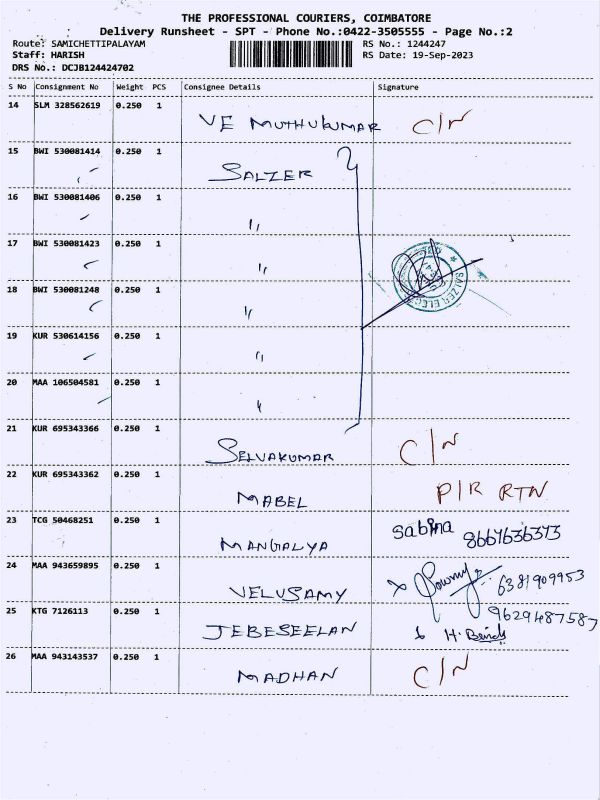 THE PROFESSIONAL COURIERS, COIMBATORE
Delivery Runsheet - SPT - Phone No.:0422-3505555 - Page No.:2
Route: SAMICHETTIPALAYAM RS No.: 1244247
Staff: HARISH RS Date: 19-Sep-2023
DRS No.: DCJB124424702
S No Consignment No Weight PCS Consignee Details Signature
14 SLM 328562619 0.250 1 VE MUTHUKUMAR C/N
15 BWI 530081414 0.250 1 SALZER
16 BWI 530081406 0.250 1 "
17 BWI 530081423 0.250 1 "
SALZER ELECT
18 BWI 530081248 0.250 1 "
19 KUR 530614156 0.250 1 "
20 MAA 106504581 0.250 1 "
21 KUR 695343366 0.250 1 SELVAKUMAR C/N
22 KUR 695343362 0.250 1 MABEL P/R RTN
23 TCG 50468251 0.250 1 MANGALYA sabina 8667636373
24 MAA 943659895 0.250 1 VELUSAMY 6381909953
25 KTG 7126113 0.250 1 JEBESEELAN 9629487587
26 MAA 943143537 0.250 1 MADHAN C/N